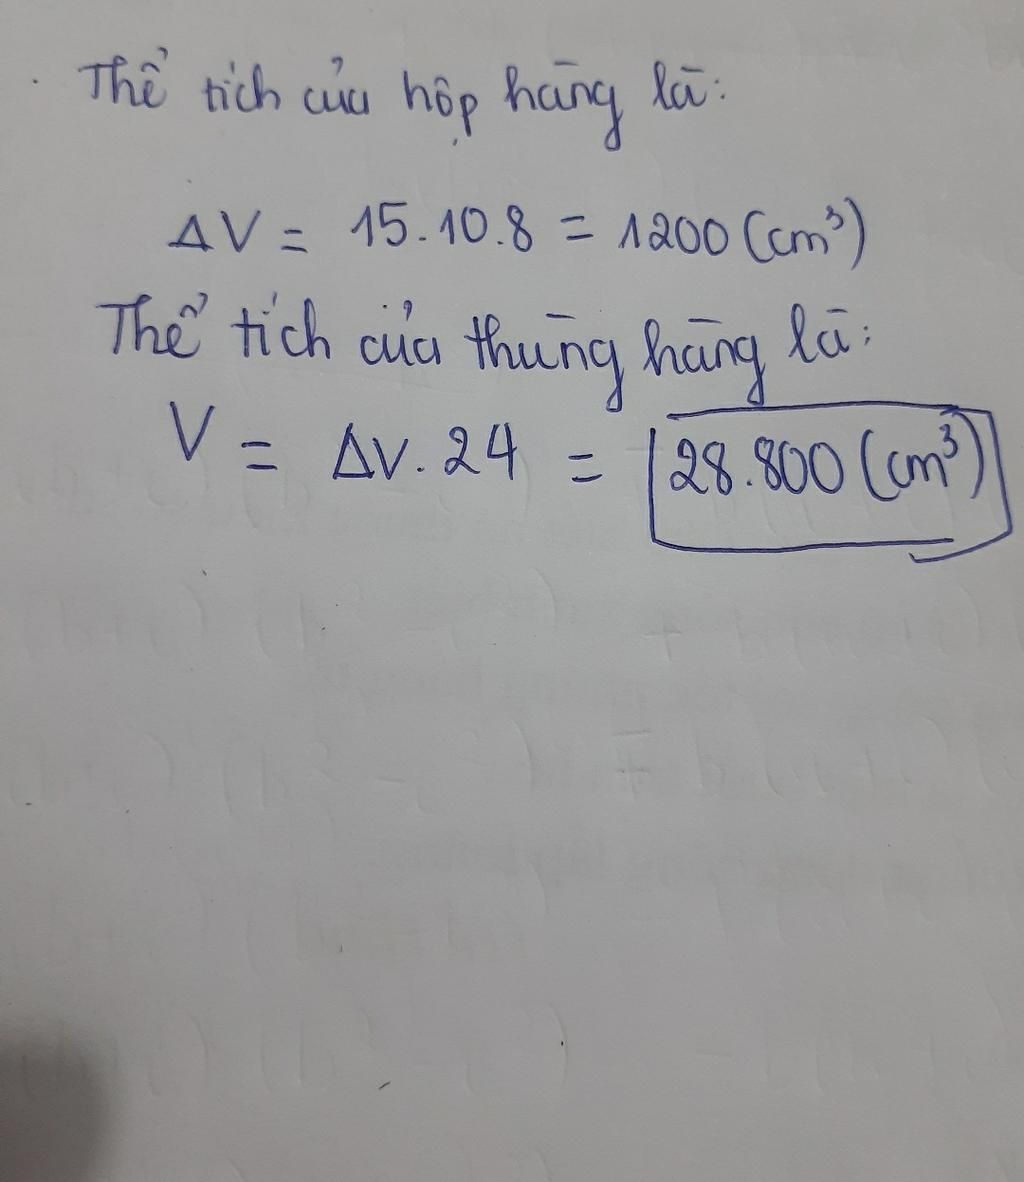 Thể tích của hộp hàng là:
ΔV = 15.10.8 = 1200 (cm³)
Thể tích của thùng hàng là:
V = ΔV. 24 = 28.800 (cm³)